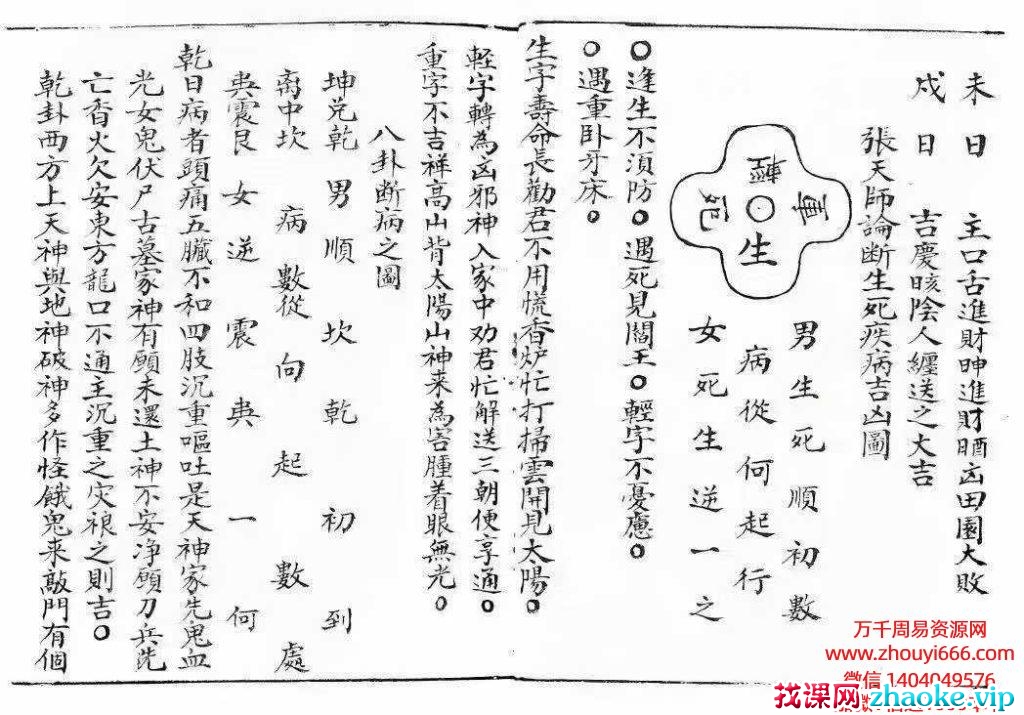 未日 主口舌進財呻進財𣈥凶田園大敗
戌日 吉慶晐陰人纏送之大吉
張天師論斷生死疾病吉凶圖
輕
重
死
生
男生死順初數
病從何起行
女死生逆一之
○逢生不須防○遇死見閻王○輕字不憂慮○
○遇重卧牙床○
生字壽命長勸君不用慌香炉忙打掃雲開見太陽○
輕字轉為凶邪神入家中劝君忙解送三朝便享通○
重字不吉祥高山背太陽山神来為害腫着眼無光○
八卦断病之圖
坤兑乾男順坎乾初到
离中坎病數從向起數處
㢲震艮女逆震㢲一何
乾日病者頭痛五臟不和四肢沉重嘔吐是天神家先鬼血
光女鬼伏尸古墓家神有願未還土神不安净願刀兵先
亡香火欠安東方龍口不通主沉重之灾禳之則吉○
乾卦西方上天神與地神破神多作怪餓鬼来敲門有個
万千周易资源网
www.zhouyi666.com
微信 1404049576
找课网 zhaoke.vip